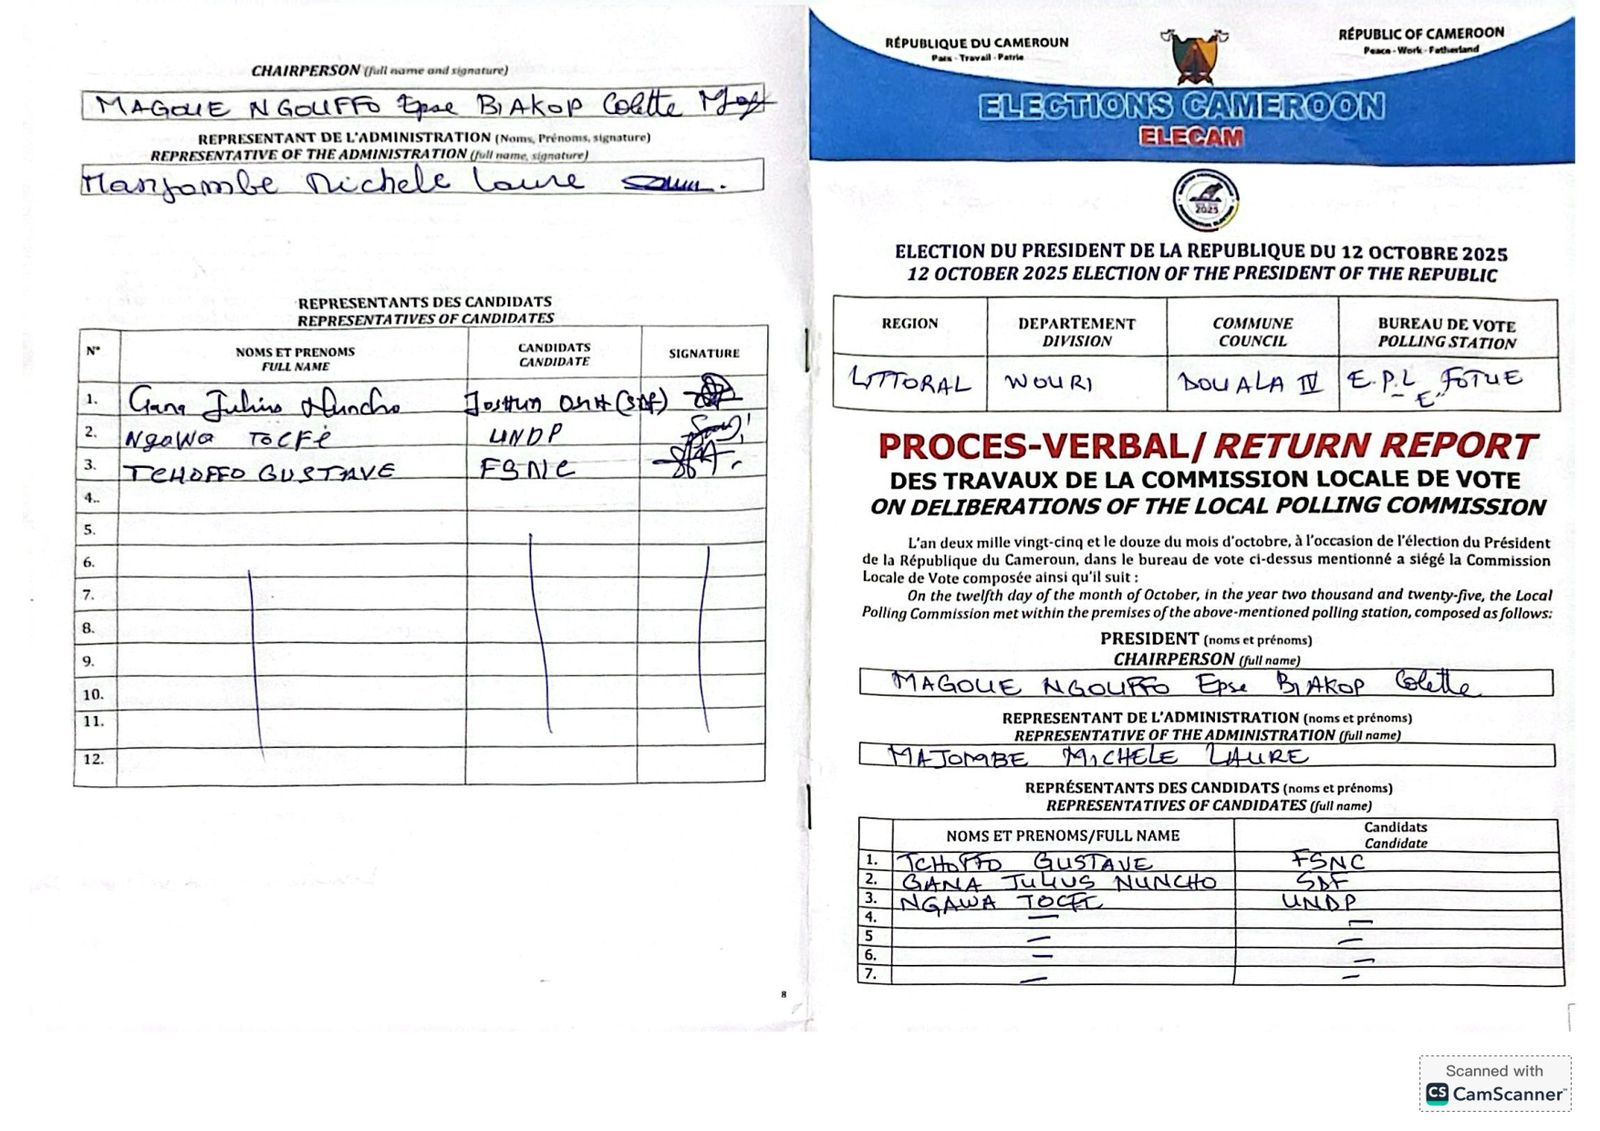 CHAIRPERSON (full name and signature)
MAGOUE NGOUFFO Epse BIAKOP Colette
REPRESENTANT DE L'ADMINISTRATION (Noms, Prénoms, signature)
REPRESENTATIVE OF THE ADMINISTRATION (full name, signature)
Manjombe Michele Laure
REPRESENTANTS DES CANDIDATS
REPRESENTATIVES OF CANDIDATES
N° NOMS ET PRENOMS FULL NAME CANDIDATS CANDIDATE SIGNATURE
1. Gana Julius Nuncho Joshua OSIH (SDF)
2. Ngawa TOCFE UNDP
3. TCHOFFO GUSTAVE FSNC
4..
5.
6.
7.
8.
9.
10.
11.
12.
8
RÉPUBLIQUE DU CAMEROUN
Paix - Travail - Patrie
RÉPUBLIC OF CAMEROON
Peace - Work - Fatherland
ELECTIONS CAMEROON
ELECAM
2025
ELECTION DU PRESIDENT DE LA REPUBLIQUE DU 12 OCTOBRE 2025
12 OCTOBER 2025 ELECTION OF THE PRESIDENT OF THE REPUBLIC
REGION DEPARTEMENT DIVISION COMMUNE COUNCIL BUREAU DE VOTE POLLING STATION
LITTORAL WOURI DOUALA IV E.P.L FOTUE "E"
PROCES-VERBAL/ RETURN REPORT
DES TRAVAUX DE LA COMMISSION LOCALE DE VOTE
ON DELIBERATIONS OF THE LOCAL POLLING COMMISSION
L'an deux mille vingt-cinq et le douze du mois d'octobre, à l'occasion de l'élection du Président
de la République du Cameroun, dans le bureau de vote ci-dessus mentionné a siégé la Commission
Locale de Vote composée ainsi qu'il suit :
On the twelfth day of the month of October, in the year two thousand and twenty-five, the Local
Polling Commission met within the premises of the above-mentioned polling station, composed as follows:
PRESIDENT (noms et prénoms)
CHAIRPERSON (full name)
MAGOUE NGOUFFO Epse BIAKOP Colette
REPRESENTANT DE L'ADMINISTRATION (noms et prénoms)
REPRESENTATIVE OF THE ADMINISTRATION (full name)
MAJOMBE MICHELE LAURE
REPRÉSENTANTS DES CANDIDATS (noms et prénoms)
REPRESENTATIVES OF CANDIDATES (full name)
NOMS ET PRENOMS/FULL NAME Candidats Candidate
1. TCHOFFO GUSTAVE FSNC
2. GANA JULIUS NUNCHO SDF
3. NGAWA TOCFE UNDP
4. — —
5 — —
6. — —
7. — —
Scanned with
CS CamScanner